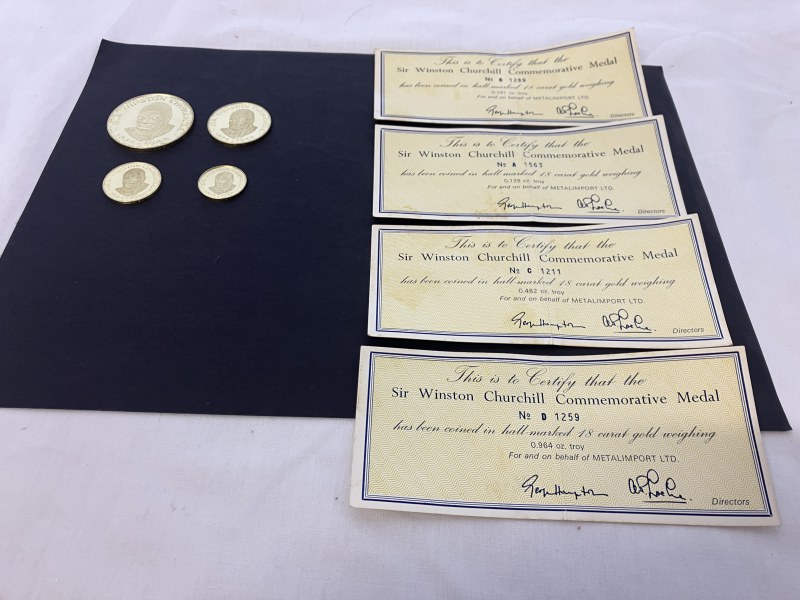 SIR WINSTON CHURCHILL
This is to Certify that the
Sir Winston Churchill Commemorative Medal
Nº B 1289
has been coined in hall-marked 18 carat gold weighing
For and on behalf of METALIMPORT LTD.
Directors
This is to Certify that the
Sir Winston Churchill Commemorative Medal
Nº A 1563
has been coined in hall-marked 18 carat gold weighing
oz. troy
For and on behalf of METALIMPORT LTD.
Directors
This is to Certify that the
Sir Winston Churchill Commemorative Medal
Nº C 1211
has been coined in hall-marked 18 carat gold weighing
0.482 oz. troy
For and on behalf of METALIMPORT LTD.
Directors
This is to Certify that the
Sir Winston Churchill Commemorative Medal
Nº D 1259
has been coined in hall-marked 18 carat gold weighing
0.964 oz. troy
For and on behalf of METALIMPORT LTD.
Directors